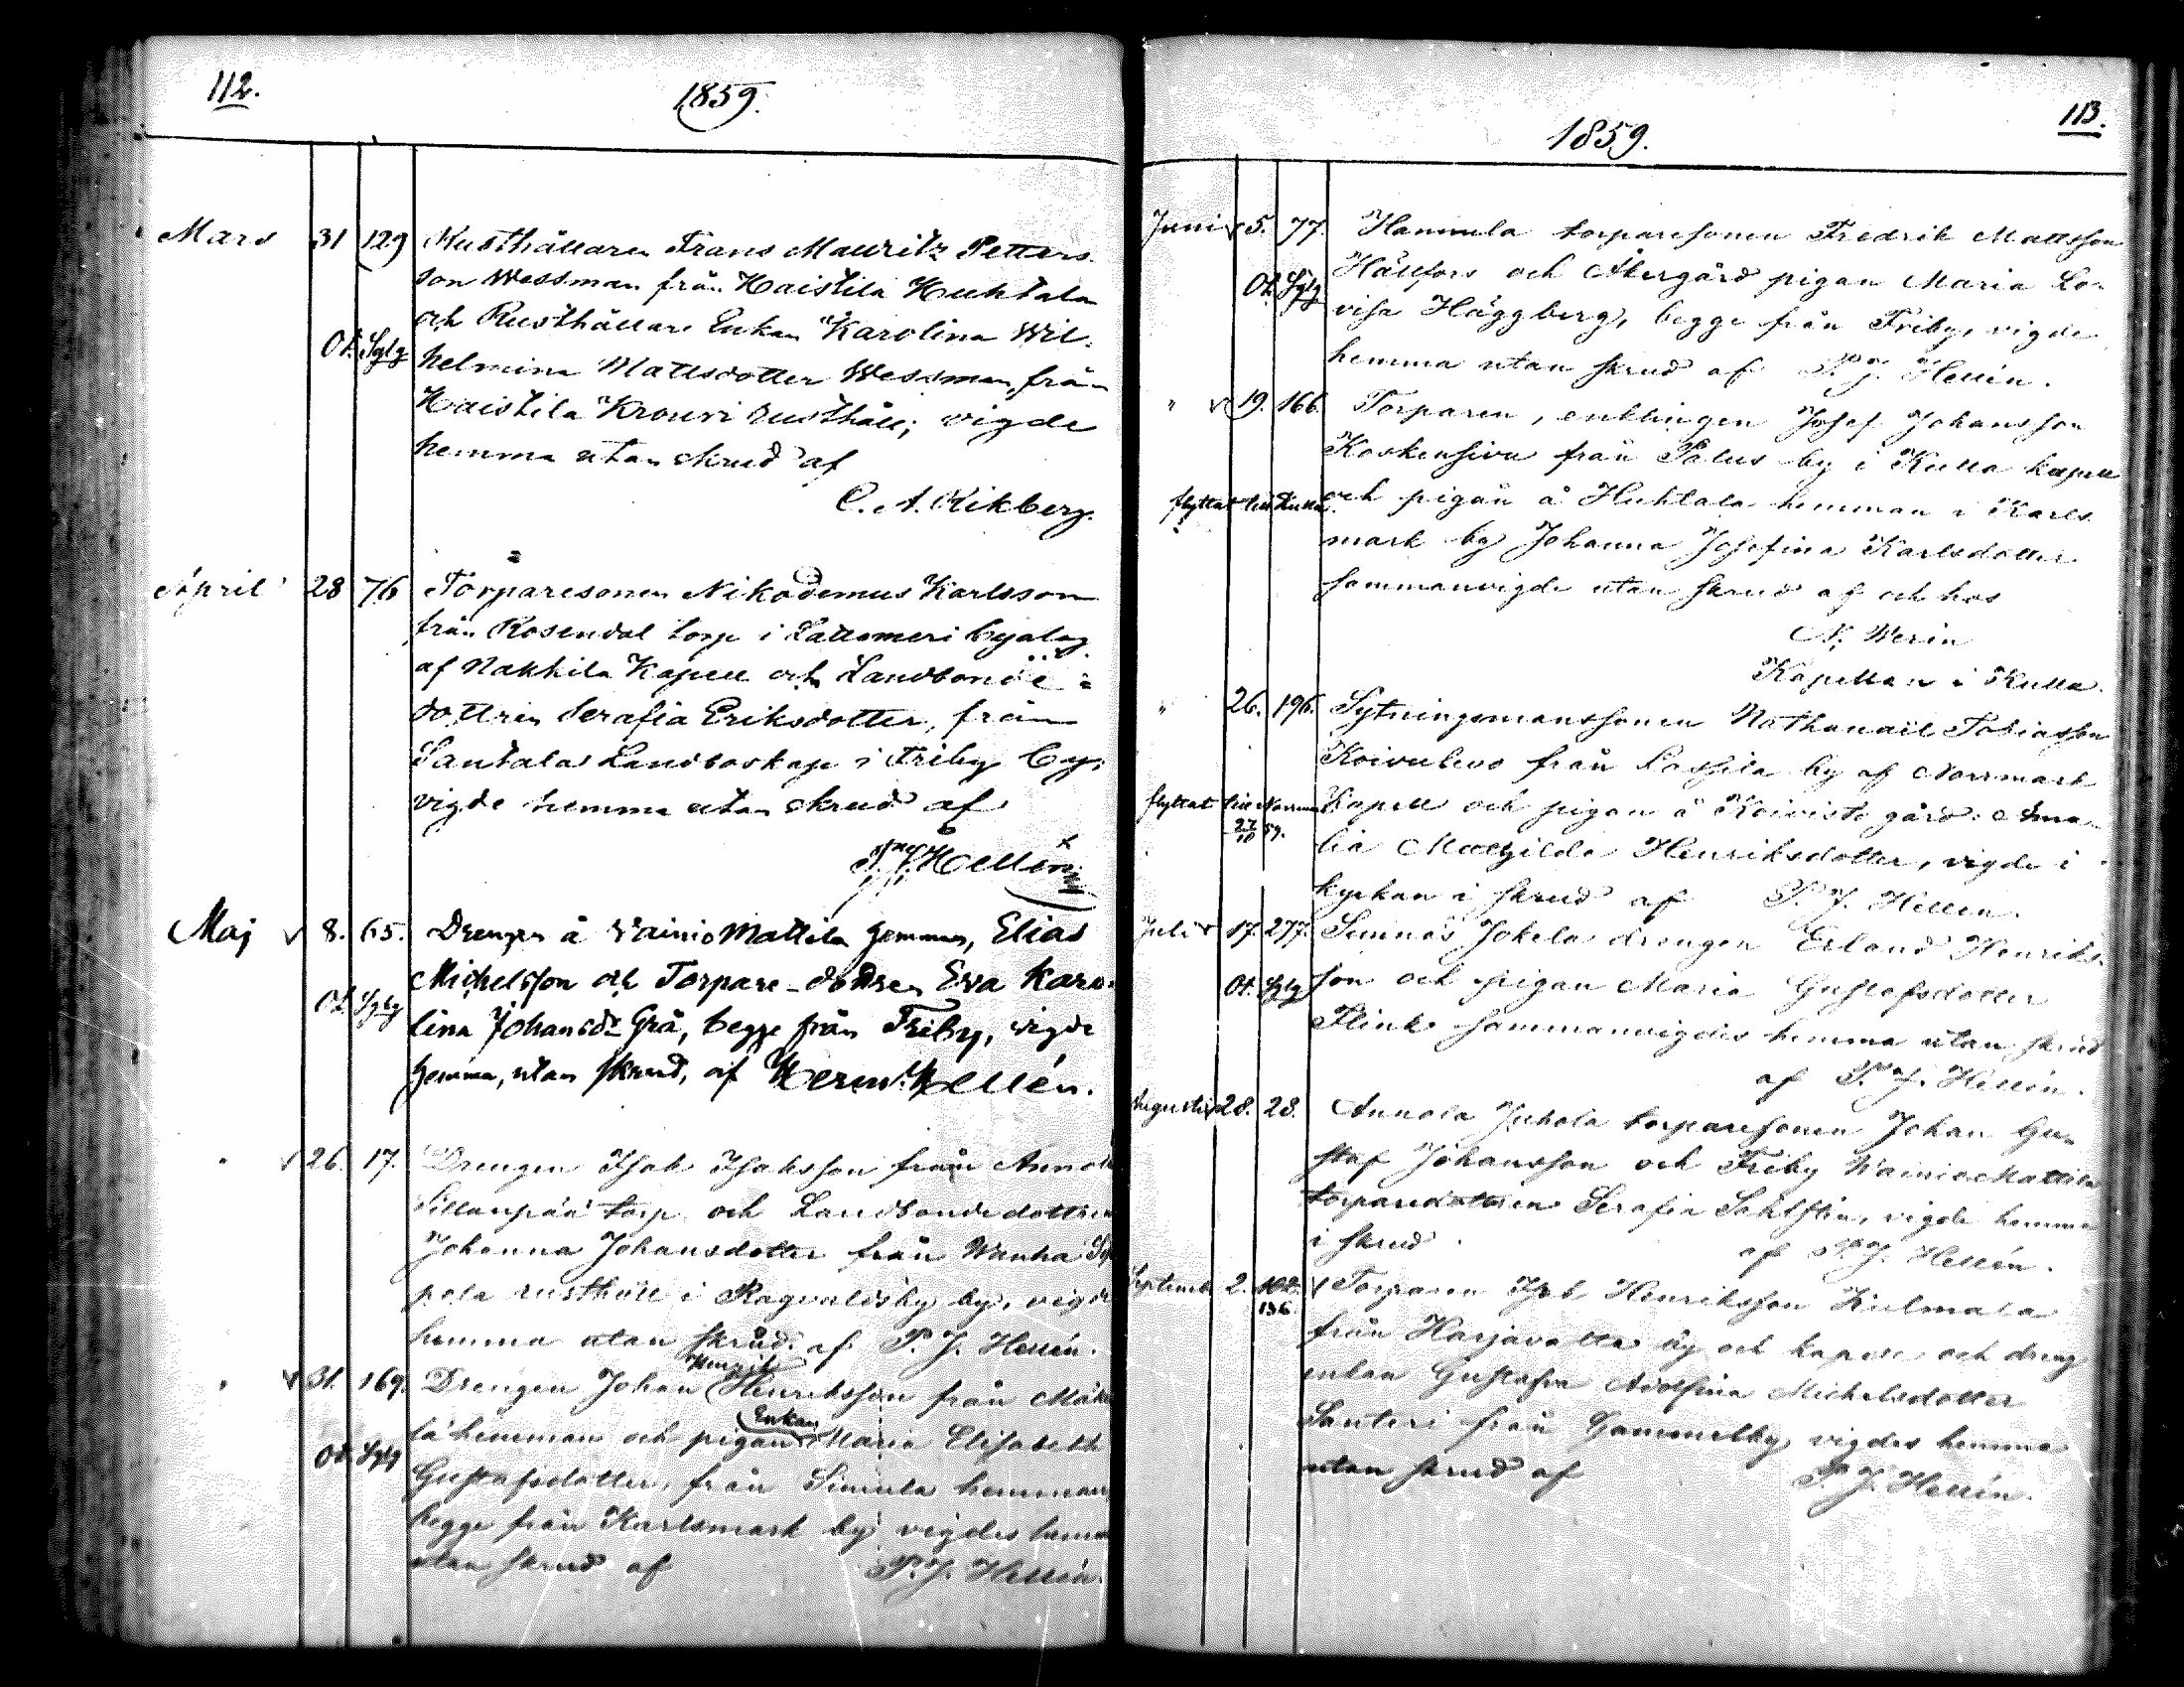 112.
1859.
Mars 31 129 Rusthållaren Frans Mauritz Petters-
son Wessman från Haistila Huhtala
och Rusthållare Enkan Karolina Wil-
Ot. Sglg helmina Mattsdotter Wessman, från
Haistila Krouvi rusthåll; vigde
hemma utan skrud af
C. A. Rikberg.
April 28 76 Torparesonen Nikodemus Karlsson
från Rosendal torp i Lattomeri byalag
af Nakkila Kapell och Landbonde-
dottren Serafia Eriksdotter, från
Santalas Landboskap i Friby by;
vigde hemma utan skrud af
P. J. Hellén
Maj v 8. 65. Drengen å Wainio Mattila hemman, Elias
Michelsson och Torpare-dottren Eva Karo-
Ot. Sglg lina Johansdr Grå, begge från Friby, vigde
hemma, utan skrud, af Herm. Hellén.
" v 26. 17. Drengen Isak Isaksson från Annola
Sillanpää torp och Landbondedottren
Johanna Johansdotter från Wanha Sep
pola rusthåll i Ragvaldsby by, vigde
hemma utan skrud af P. J. Hellén.
Henrik
" v 31. 169. Drengen Johan Henriksson från Mäke
Enkan
lä hemman och pigan Maria Elisabeth
Ot. Sglg Gustafsdotter, från Simula hemman,
begge från Karlsmark by vigdes hemma
utan skrud af P. J. Hellén.
113.
1859.
Juni v 5. 77. Hannula torparesonen Fredrik Mattsson
Ot. Sglg Hällfors och Åkergård pigan Maria Lo-
visa Häggberg, begge från Friby, vigde
hemma utan skrud af P. J. Hellén.
" v 19. 166. Torparen, enklingen Josef Johansson
Koskensivu från Palus by i Kulla kapell
flyttat till Kulla. och pigan å Huhtala hemman i Karls
mark by Johanna Josefina Karlsdotter
sammanvigde utan skrud af och hos
N. Werin
Kapellan i Kulla.
" 26. 196. Sytningsmanssonen Nathanaël Tobiasson
Koivulevo från Lassila by af Norrmark
flyttat till Norrmark 27/10 59. Kapell och pigan å Koivisto gård Ama-
lia Mathilda Henriksdotter, vigde i
kyrkan i skrud af P. J. Hellén.
Juli v 17. 277. Sunnäs Jokela drengen Erland Henriks-
Ot. Sglg son och pigan Maria Gustafsdotter
Flink sammanvigdes hemma utan skrud
af P. J. Hellén.
Augusti v 28. 28. Annola Juhola torparesonen Johan Gu-
staf Johansson och Friby Wainio Mattila
torparedottren Serafia Sahlstén, vigde hemma
i skrud. af P. J. Hellén.
Septemb. 2. 136. Torparen Henriksson Kulmala
från Harjavalta by och kapell och dreng
enkan Gustafva Adolfina Michelsdotter
Santeri från Gammelby, vigdes hemma
utan skrud af P. J. Hellén.